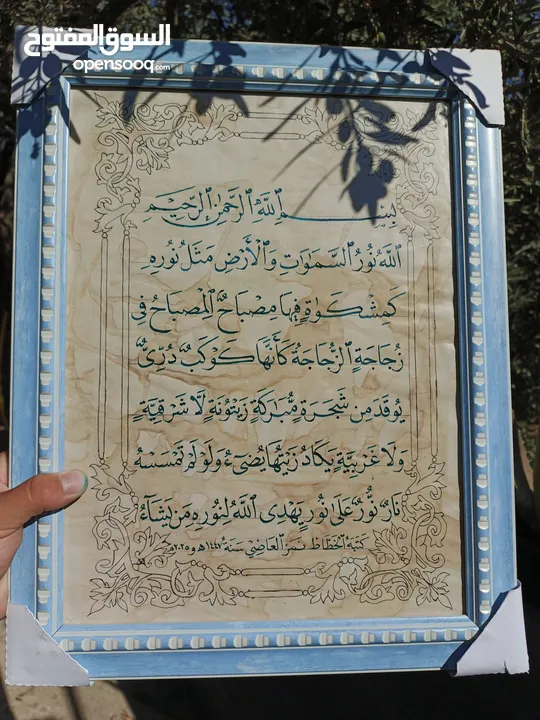 السوق المفتوح
opensooq.com
بِسْمِ اللَّهِ الرَّحْمَٰنِ الرَّحِيمِ
اللَّهُ نُورُ السَّمَاوَاتِ وَالْأَرْضِ مَثَلُ نُورِهِ
كَمِشْكَوٰةٍ فِيهَا مِصْبَاحٌ الْمِصْبَاحُ فِي
زُجَاجَةٍ الزُّجَاجَةُ كَأَنَّهَا كَوْكَبٌ دُرِّيٌّ
يُوقَدُ مِن شَجَرَةٍ مُّبَارَكَةٍ زَيْتُونَةٍ لَا شَرْقِيَّةٍ
وَلَا غَرْبِيَّةٍ يَكَادُ زَيْتُهَا يُضِيءُ وَلَوْ لَمْ تَمْسَسْهُ
نَارٌ نُّورٌ عَلَىٰ نُورٍ يَهْدِي اللَّهُ لِنُورِهِ مَن يَشَاءُ
كتبه الخطاط نمر العاضي سنة ١٤٤٧هـ و ٢٠٢٥م